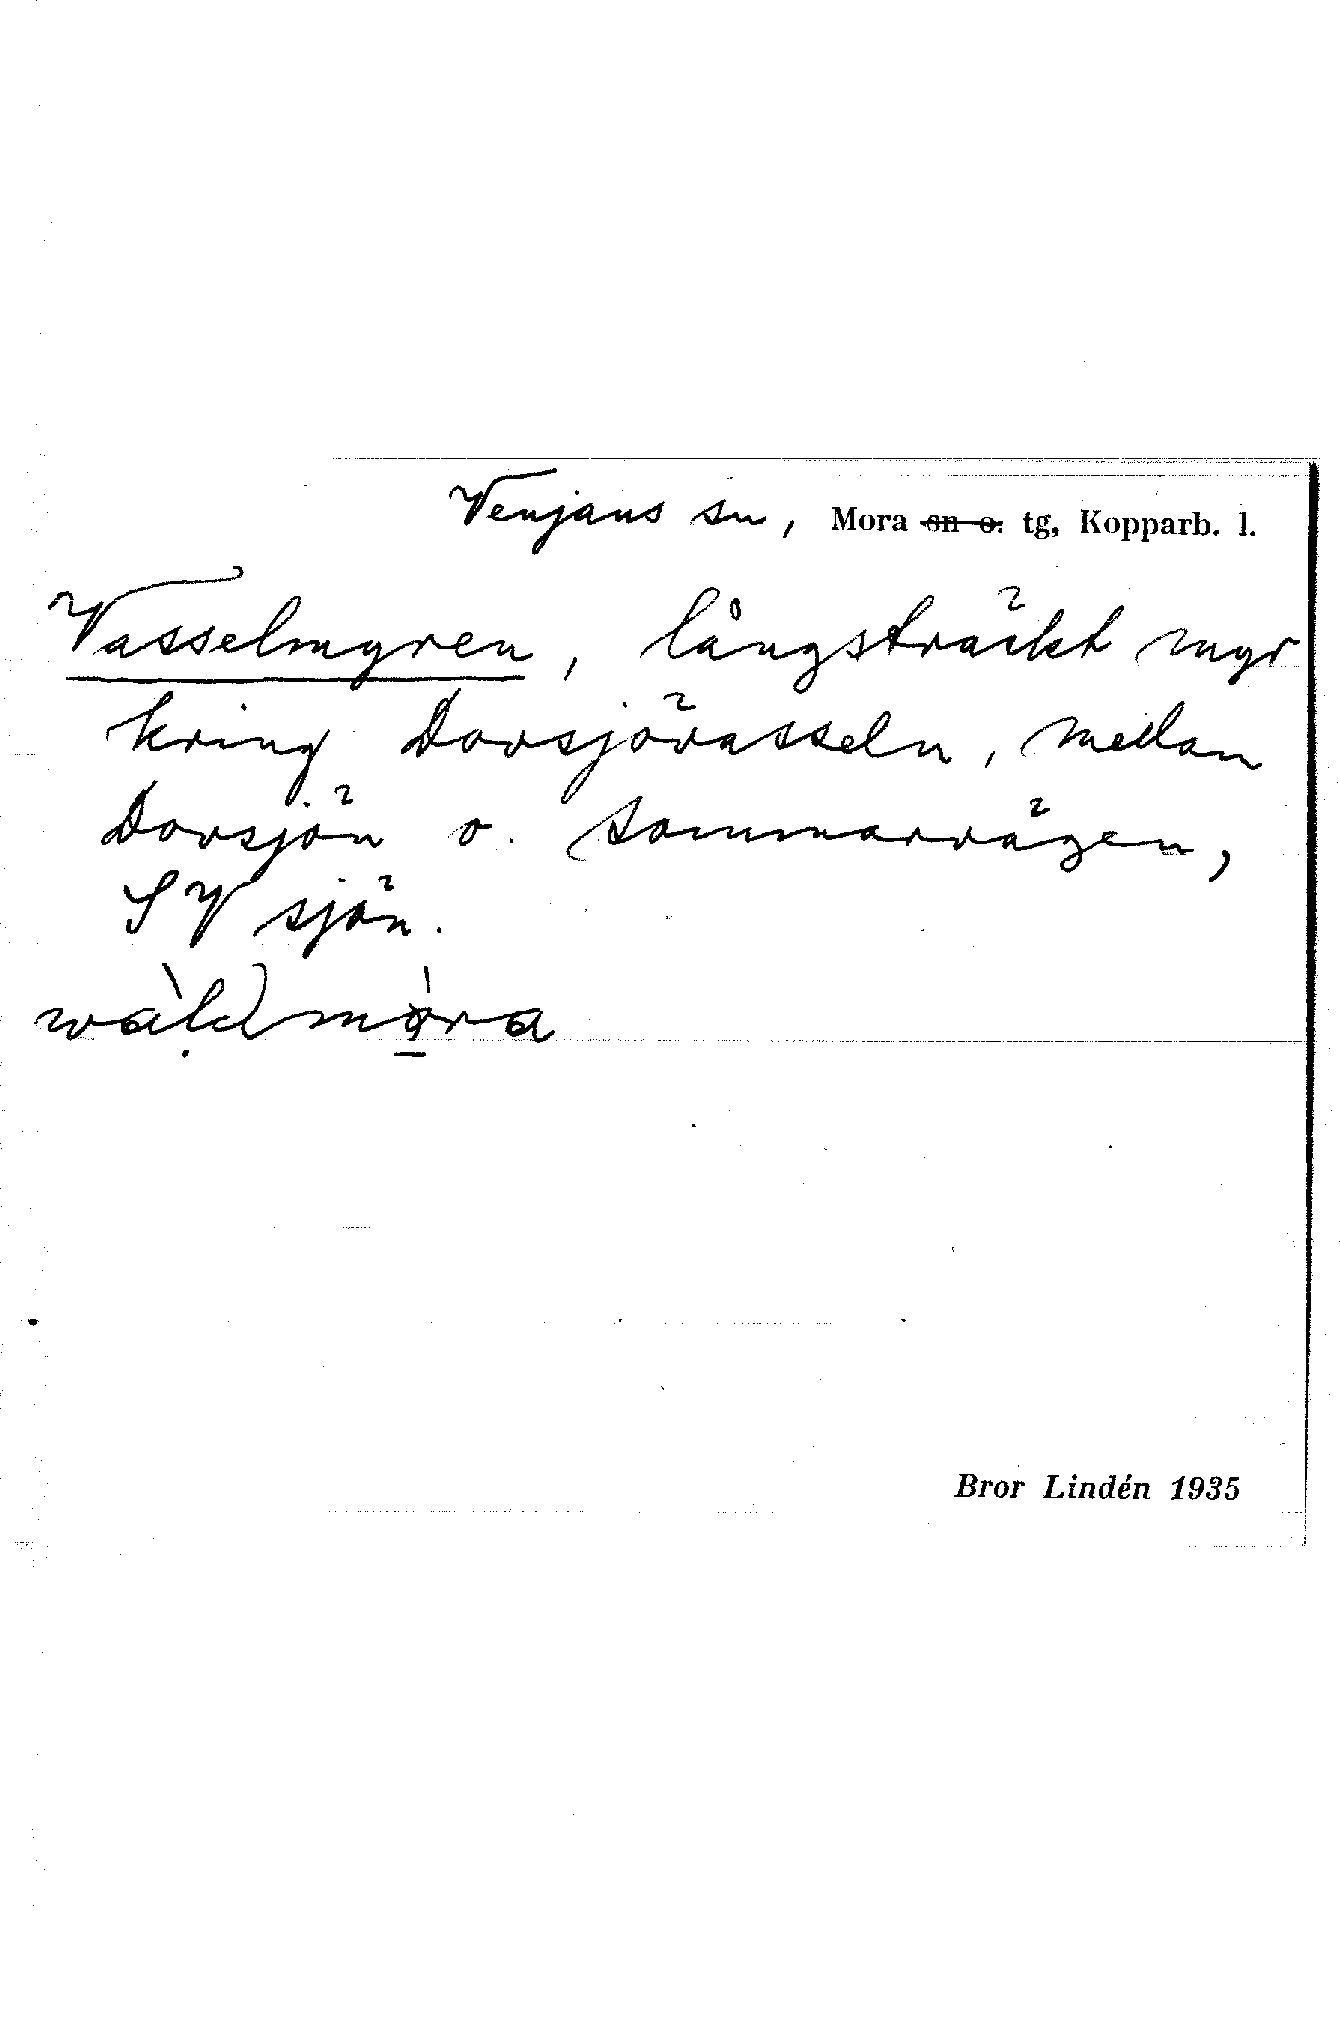 Venjans sn, Mora sn o. tg, Kopparb. l.
Vasselmyren, långsträckt myr
kring Dovsjövasseln, mellan
Dovsjön o. Sommarvägen,
SV sjön.
Bror Lindén 1935